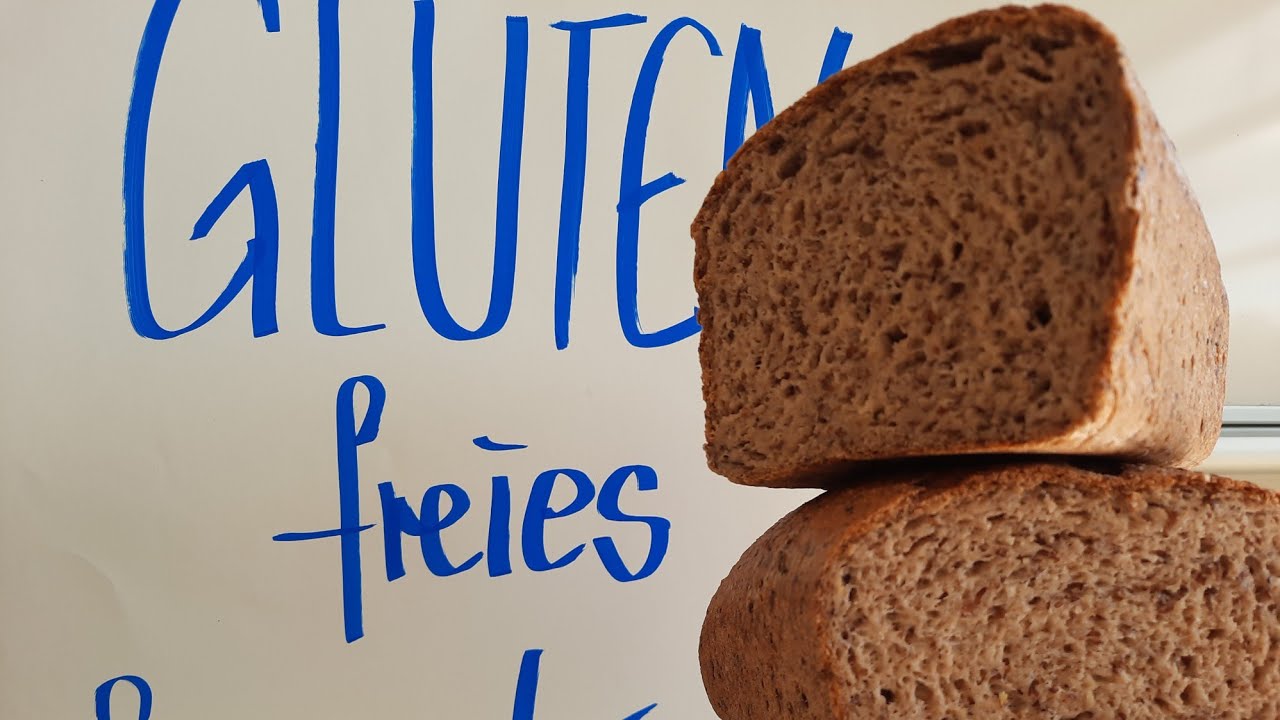 GLUTEN
freies